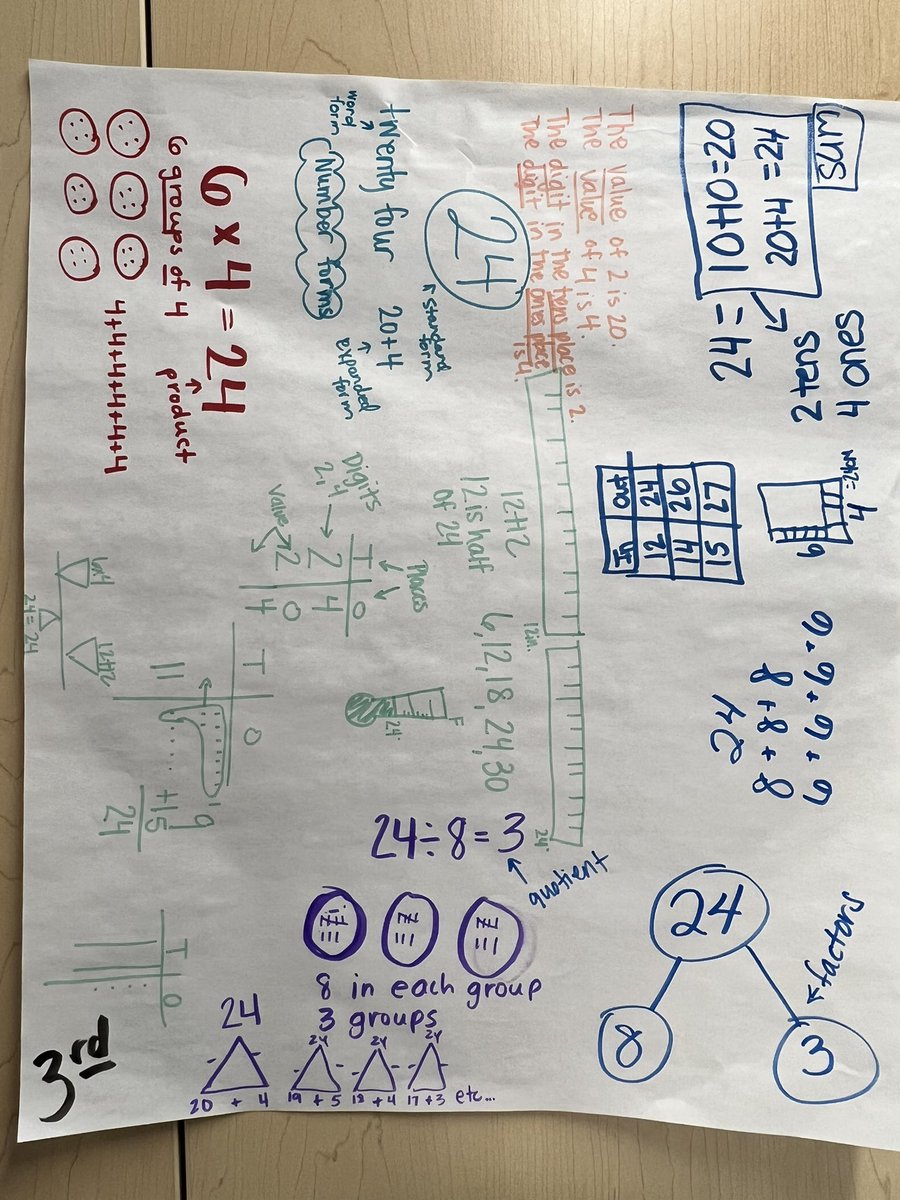 sum
10+10=20
20+4=24
24=
2 tens
4 ones
The value of 2 is 20.
The value of 4 is 4.
The digit in the tens place is 2.
The digit in the ones place is 4.
24
standard form
twenty four
20+4
word form
expanded form
Number forms
6 x 4 = 24
product
6 groups of 4
4+4+4+4+4+4
=24cm
4
6
In Out
12 24
14 26
15 27
12 in.
24"
12+12
12 is half
of 24
6, 12, 18, 24, 30
Places
T O
Digits
24
2 4
value
2 0
4
F
24°
T O
11
9
+15
24
6x4
12+12
24=24
T O
6+6+6+6
8+8+8
24
24
8
3
factors
24÷8=3
quotient
8 in each group
3 groups
24
20 + 4
24
19 + 5
24
18 + 4
24
17 + 3
etc...
3rd